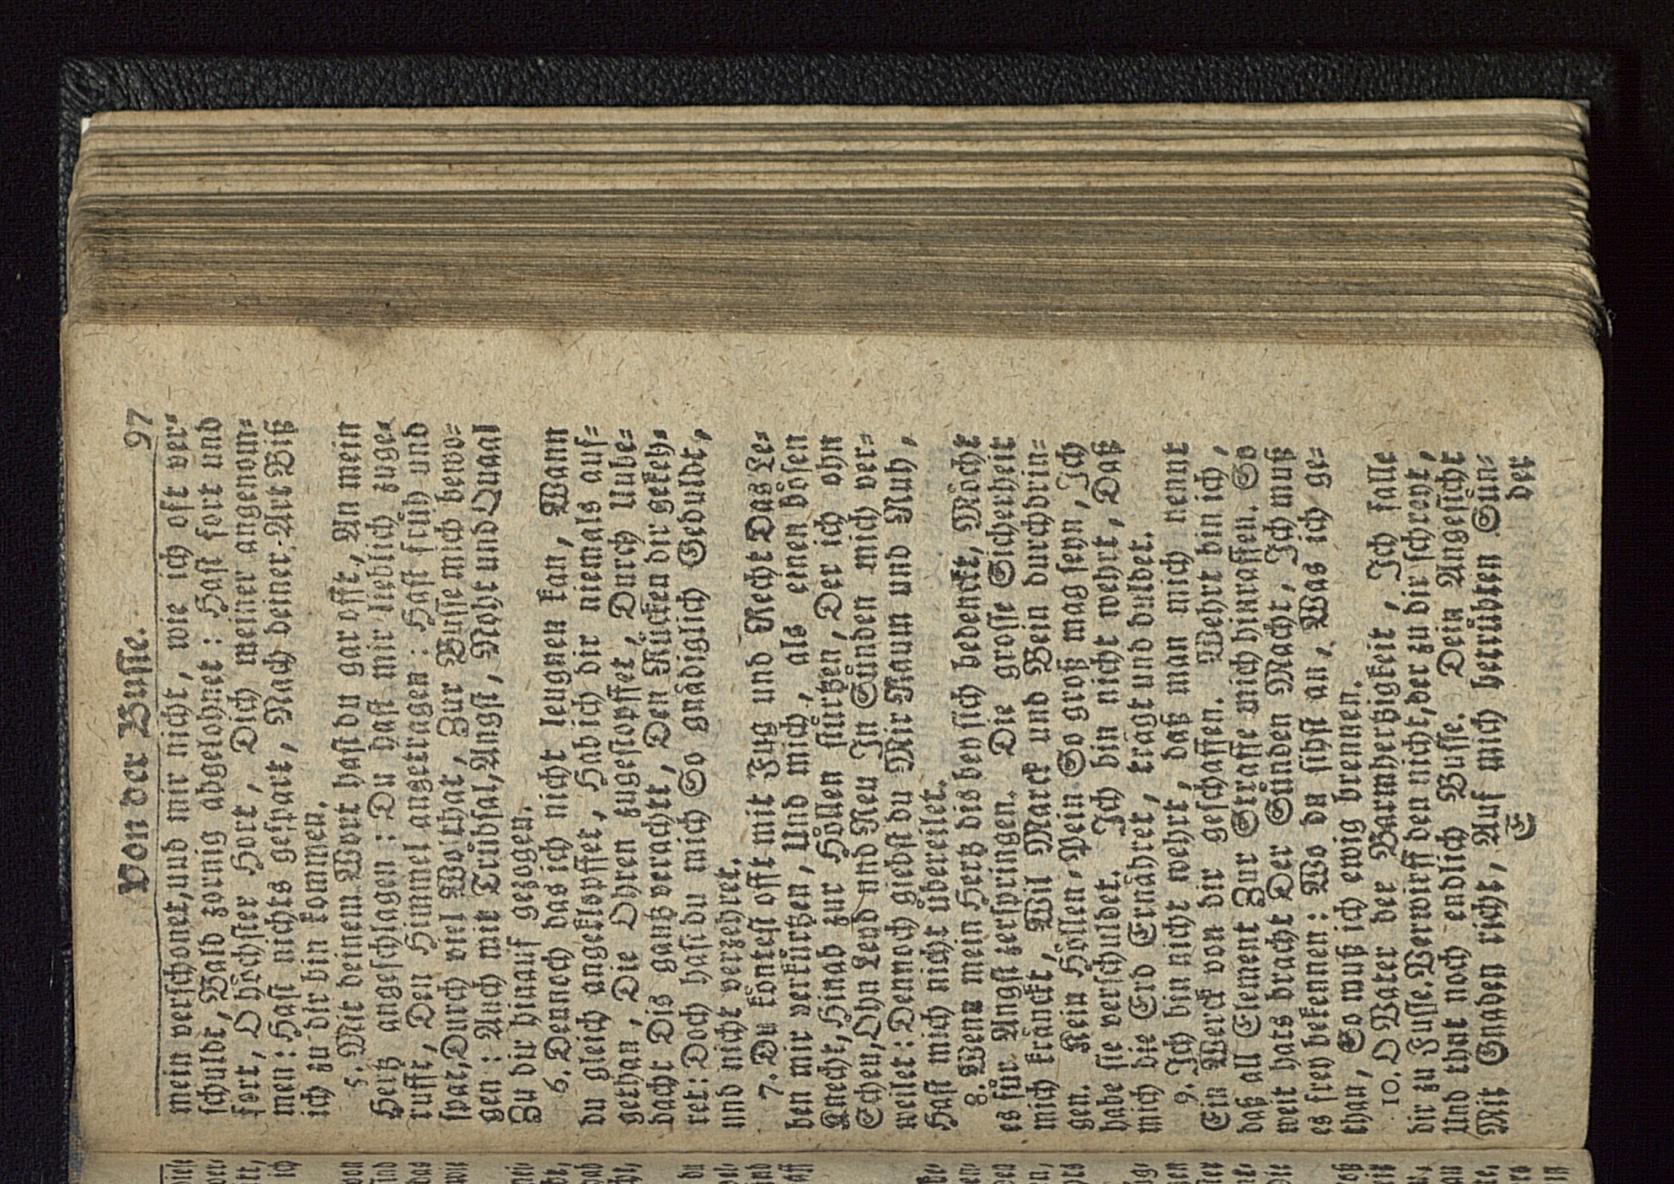 Von der Busse. 97
mein verschonet, und mir nicht, wie ich oft ver-
schuldt, Bald zornig abgelohnet: Hast fort und
fort, O höchster Hort, Dich meiner angenom-
men: Hast nichts gespart, Nach deiner Art Biß
ich zu dir bin kommen.
5. Mit deinem Wort hast du gar offt, An mein
Hertz angeschlagen: Du hast mir lieblich zuge-
rufft, Den Himmel angetragen: Hast früh und
spat, Durch viel Wolthat, Zur Busse mich bewo-
gen: Auch mit Trübsal, Angst, Noht und Quaal
Zu dir hinauf gezogen.
6. Dennoch das ich nicht leugnen kan, Wann
du gleich angeklopffet, Hab ich dir niemals auf-
gethan, Die Ohren zugestopffet, Durch Unbe-
dacht Dis gantz veracht, Den Rücken dir gekeh-
ret: Doch hast du mich So gnädiglich Geduldt,
und nicht verzehret.
7. Du köntest offt mit Fug und Recht Das Le-
ben mir verkürtzen, Und mich, als einen bösen
Knecht, Hinab zur Höllen stürtzen, Der ich ohn
Scheu, Ohn Leyd und Reu In Sünden mich ver-
weilet: Dennoch giebst du Mir Raum und Ruh,
Hast mich nicht übereilet.
8. Wenn mein Hertz dis bey sich bedenckt, Möcht
es für Angst zerspringen. Die grosse Sicherheit
mich kränckt, Wil Marck und Bein durchdrin-
gen. Kein Höllen-Pein So groß mag seyn, Ich
habe sie verschuldet. Ich bin nicht wehrt, Daß
mich die Erd Ernähret, trägt und duldet.
9. Ich bin nicht wehrt, daß man mich nennt
Ein Werck von dir geschaffen. Wehrt bin ich,
daß all Element Zur Straffe mich hinraffen. So
weit hats bracht Der Sünden Macht, Ich muß
es frey bekennen: Wo du sihst an, Was ich ge-
than, So muß ich ewig brennen.
10. O Vater der Barmhertzigkeit, Ich falle
dir zu Fusse. Verwirff den nicht, der zu dir schreyt,
Und thut noch endlich Busse. Dein Angesicht
Mit Gnaden richt, Auf mich betrübten Sün-
E der